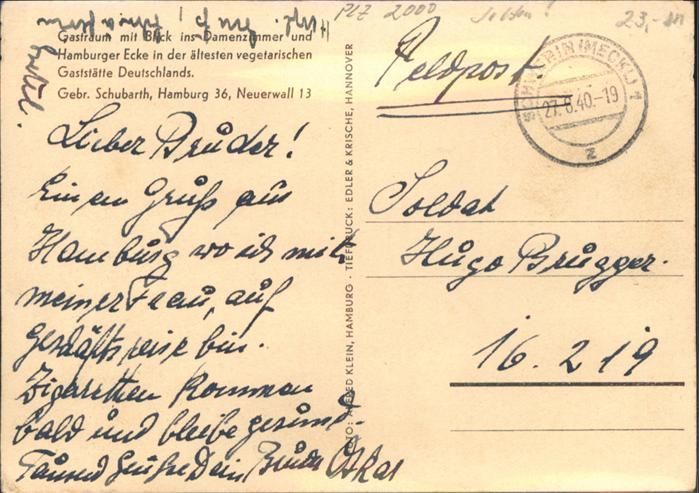 PLZ 2000
23,-
Gastraum mit Blick ins Damenzimmer und
Hamburger Ecke in der ältesten vegetarischen
Gaststätte Deutschlands.
Gebr. Schubarth, Hamburg 36, Neuerwall 13
Lieber Bruder!
Einen Gruß aus
Hamburg wo ich mit
meiner Frau, auf
Geschäftsreise bin.
Zigaretten kommen
bald und bleibe gesund.
Tausend Grüße Dein Bruder Oskar
FOTO: ALFRED KLEIN, HAMBURG · TIEFDRUCK: EDLER & KRISCHE, HANNOVER
Feldpost.
SCHWERIN (MECKL) 1
27.8.40.-19
z
Soldat
Hugo Brugger.
16.219